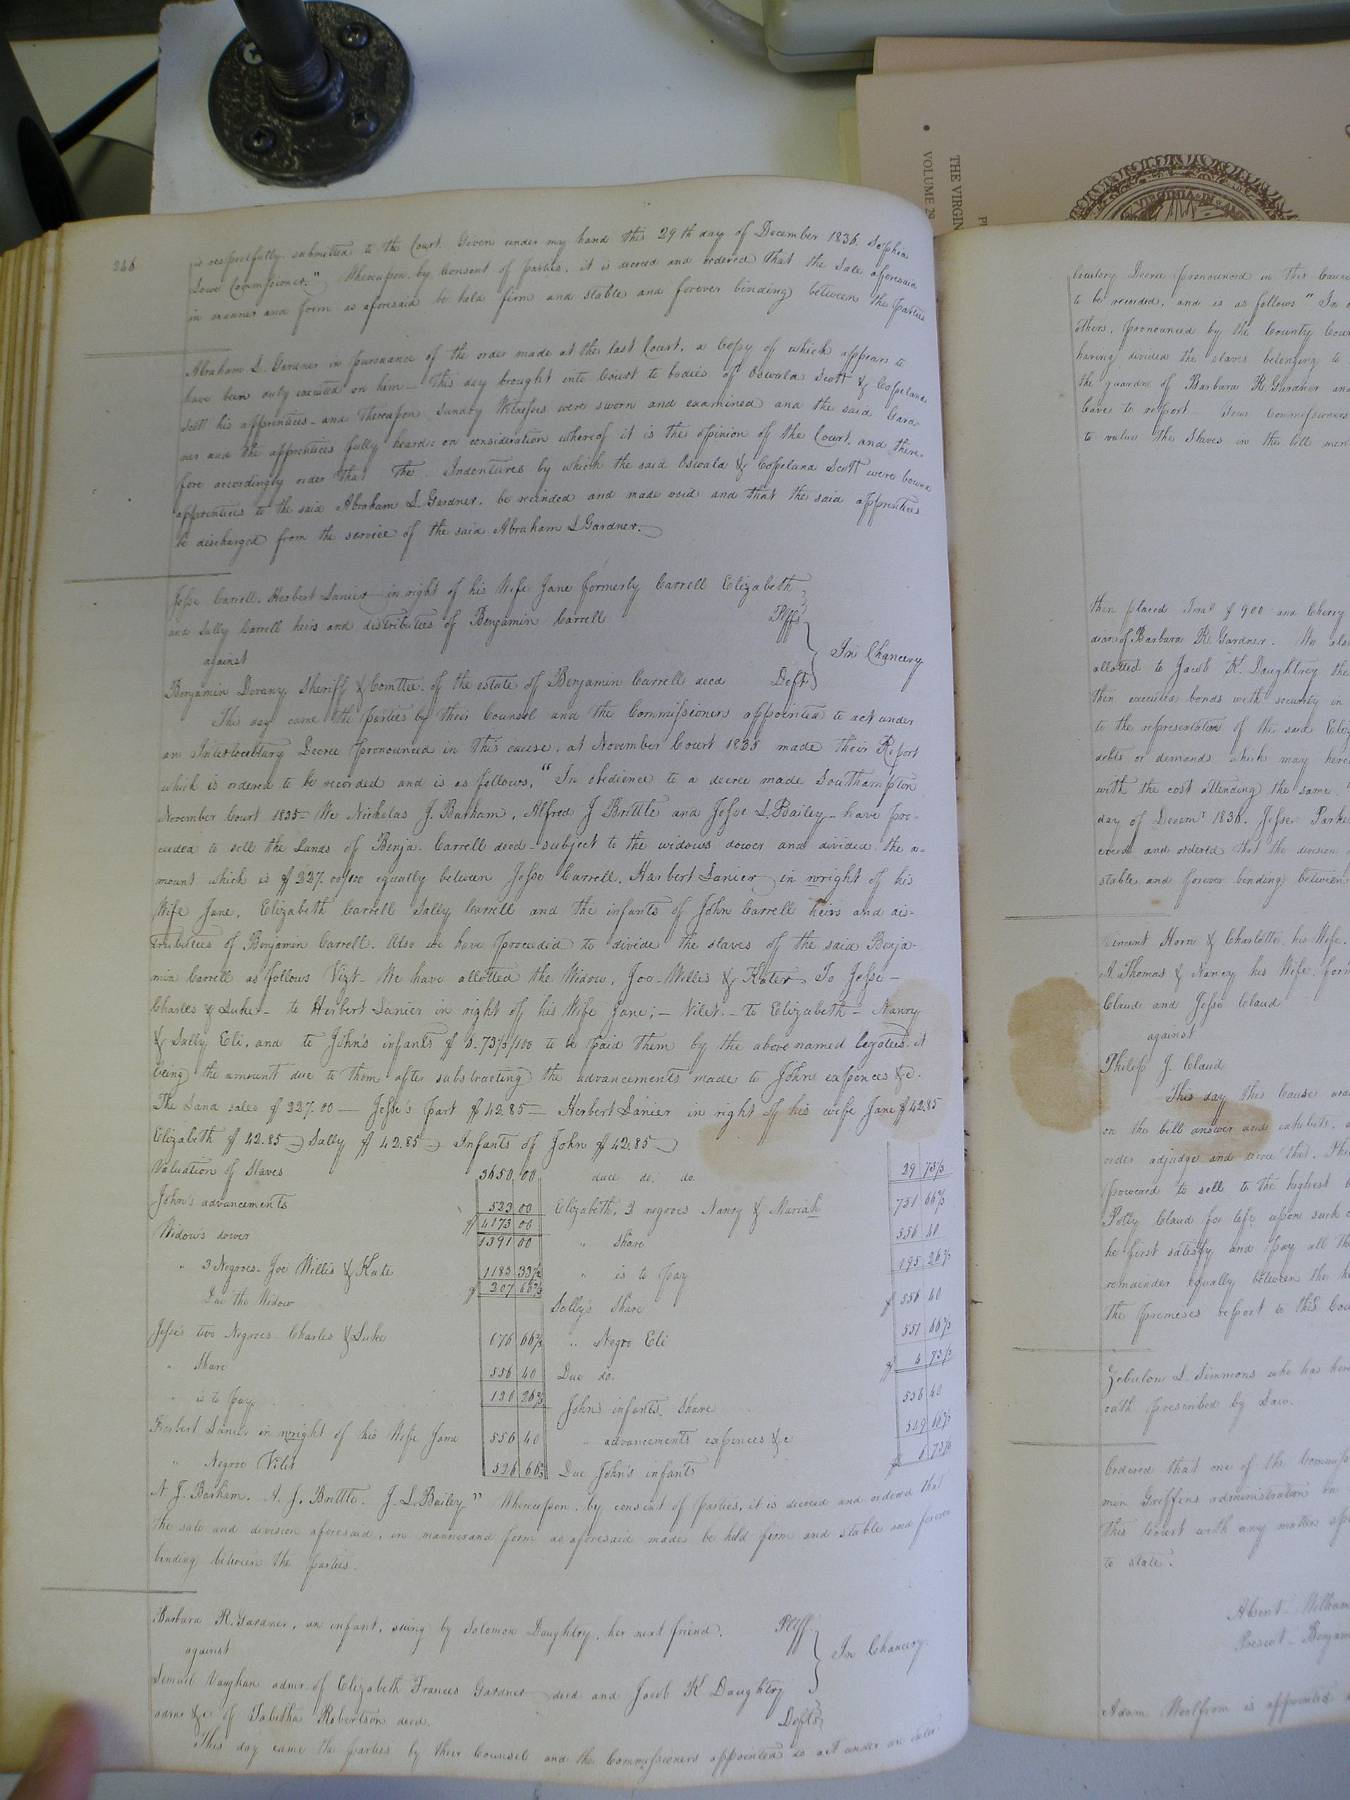 346
is respectfully submitted to the Court. Given under my hand this 29th day of December 1836. Sophia
Lowe Commissioner." Whereupon by Consent of parties, it is decreed and ordered that the Sale aforesaid
in manner and form as aforesaid be held firm and stable and forever binding between the parties
Abraham L. Gardner in pursuance of the order made at the last Court, a Copy of which appears to
have been duly executed on him – This day brought into Court to bodies of Oswald Scott & Copeland
Scott his apprentices – and thereupon Sundry Witnesses were sworn and examined and the said Gard-
ner and the apprentices fully heard: on consideration whereof it is the opinion of the Court, and there-
fore accordingly order that the Indentures by which the said Oswald & Copeland Scott were bound
apprentices to the said Abraham L Gardner, be recinded and made void and that the said apprentices
be discharged from the service of the said Abraham L Gardner.
Jesse Carrell, Herbert Lanier in right of his Wife Jane formerly Carrell Elizabeth
and Sally Carrell heirs and distributees of Benjamin Carrell Plffs
against In Chancery
Benjamin Devany Sheriff & Comttee. of the estate of Benjamin Carrell decd Deft
This day came the parties by their Counsel and the Commissioners appointed to act under
an Interlocutory Decree pronounced in this cause, at November Court 1835 made their Report
which is ordered to be recorded and is as follows, "In obedience to a decree made Southampton
November Court 1835 – We Nicholas J. Barham, Alfred J Brittle and Jesse L. Bailey – have pro-
ceeded to sell the Lands of Benja. Carrell decd – subject to the widows dower and divided the a-
mount which is $ 227.00/100 equally between Jesse Carrell, Harbert Lanier in wright of his
Wife Jane, Elizabeth Carrell Sally Carrell and the infants of John Carrell heirs and dis-
tributees of Benjamin Carrell. Also we have procedid to divide the slaves of the said Benja-
min Carrell as follows Vizt – We have allotted the Widow, Joe – Willis & Kater To Jesse –
Charles & Luke – to Herbert Lanier in right of his Wife Jane; – Vilet. – to Elizabeth – Nanny
& Sally Eli, and to John's infants $ 6.73⅓/100 to be paid them by the above named legatees it
being the amount due to them after substracting the advancements made to John's expences &c.
The Land sales $ 227.00 — Jesse's part $ 42.85 – Herbert Lanier in right of his wife Jane $ 42.85
Elizabeth $ 42.85 – Sally $ 42.85 – Infants of John $ 42.85 –
Valuation of Slaves 3650,00 due do. do. 29 73⅓
John's advancements 523 00 Elizabeth, 2 negroes Nancy & Mariah 751 66⅔
$ 4173 00
Widow's dower 1391 00 " share 556 40
" 3 Negroes – Joe Willis & Kate 1183 33⅓ " is to pay 195 26⅔
Due the Widow $ 207 66⅔ Sally's share $ 556 40
Jesse's two Negroes – Charles & Luke 676 66⅔ " Negro Eli 551 66⅔
" Share 556 40 Due do. $ 4 73⅓
" is to pay 120 26⅔ John's infants share 556 40
Herbert Lanier in wright of his Wife Jane 556 40 " advancements expences &c 549 66⅔
" Negroe Vilet 526 66⅔ Due John's infants $ 6 73⅓
N. J. Barham. A. J. Brittle. J. L. Bailey" Whereupon, by consent of parties, it is decreed and ordered that
the sale and division aforesaid, in manner and form as aforesaid made be held firm and stable and forever
binding between the parties.
Barbara R. Gardner, an infant, suing by Solomon Daughtry, her next friend. Plff
against In Chancery.
Lemuel Vaughan admr. of Elizabeth Frances Gardner decd and Jacob K Daughtry
admr &c of Tabitha Robertson decd. Defts
This day came the parties by their Counsels and the Commissioners appointed to act under an inter
THE VIRGIN
VOLUME 2
VIRGINIA IN
locutory Decree pronounced in this Cause
to be recorded, and is as follows "In o
others, pronounced by the County Cour
having divided the slaves belonging to
the guardn. of Barbara R. Gardner and
leave to report. Your Commissioners
to value the Slaves in the bill men
then placed $ 900 and Cherry
dian of Barbara R. Gardner. We als
allotted to Jacob K. Daughtrey the
then executed bonds with security in
to the representation of the said Eliz
debts or demands which may here
with the cost attending the same.
day of Decemr 1836. Jesse Parke
creed and ordered that the division
stable and forever binding between
Vincent Horn & Charlotte his Wife.
A. Thomas & Nancy his Wife form
Claud and Jesse Claud
against
Philip J. Claud
This day this Cause was
on the bill answer and exhibits, a
order adjudge and decree that, Th
powered to sell to the highest b
Polly Claud for life, upon such c
he first satisfy and pay all th
remainder equally between the h
the premises report to this Cou
Zebulon L. Simmons who has here
oath prescribed by Law.
Ordered that one of the Commiss
men Griffins administration on
this Court with any matter spe
to state.
Absent – William
Present – Benjam
Adam Woolfrom is appointed